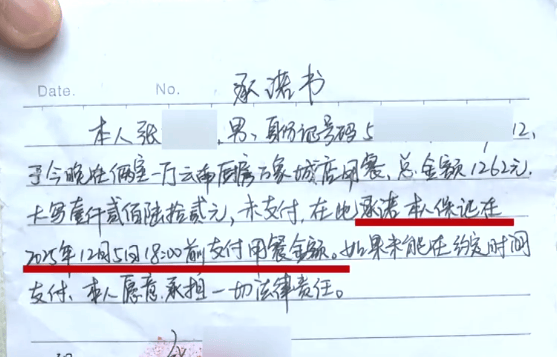 Date. No. 承诺书
本人张 ,男,身份证号码5 12,
于今晚在俩室一厅云南厨房万象城店用餐,总金额1262元.
大写壹仟贰佰陆拾贰元,未支付,在此承诺本人保证在
2025年12月5日18:00前支付用餐金额。如果未能在约定时间
支付、本人愿意承担一切法律责任。